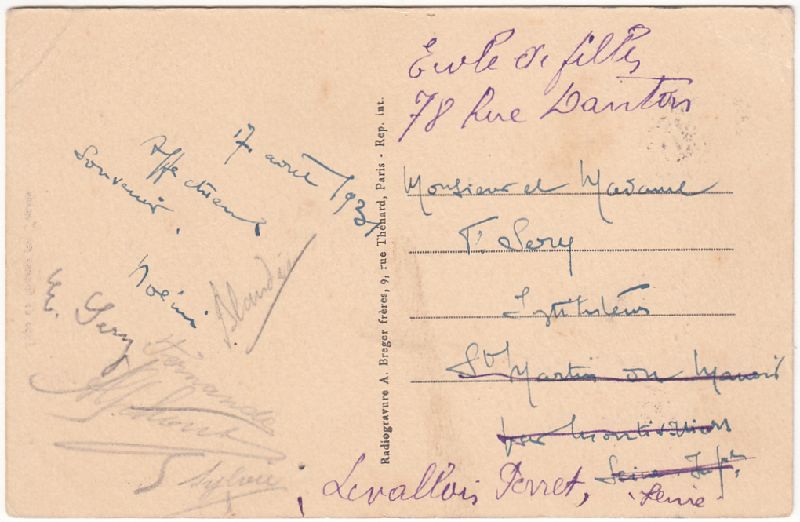 17 août 193
Affectueux
souvenir.
Noémi
Blandine
Fernande
Sylvie
Radiogravure A. Breger frères, 9, rue Thénard, Paris - Rep. int.
Ecole de filles
78 Rue Danton
Monsieur et Madame
F. Sery
Instituteurs
St Martin du Manoir
par Montivilliers
Seine Infre
Levallois Perret,
Seine